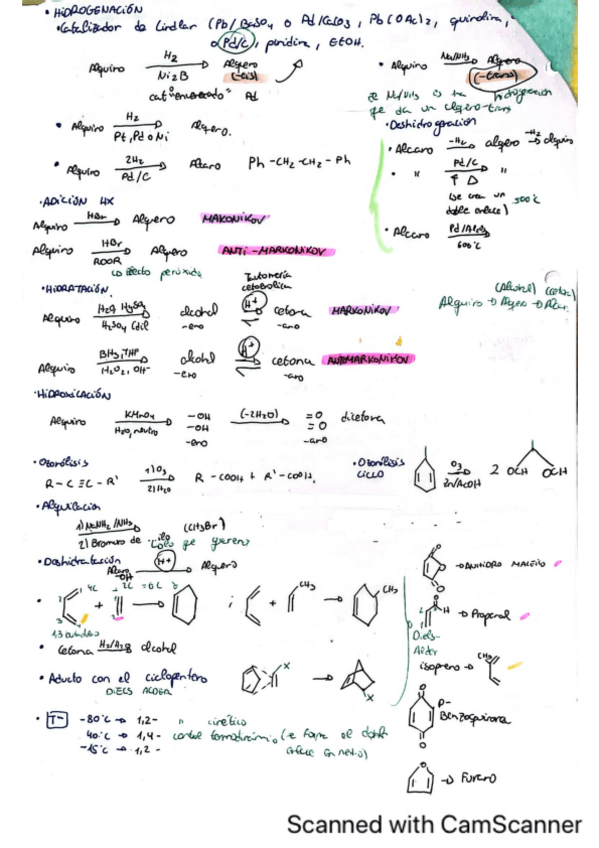 · HIDROGENACIÓN
· Catalizador de Lindlar (Pb/BaSO4 o Pd/CaCO3, Pb(OAc)2, quinolina,
o Pd/C, piridina, EtOH.
Alquino H2 Ni2B Alqueno (-cis)
cat "envenenado" Pd
· Alquino Na/NH3 Alqueno (-trans)
· Alquino H2 Pt, Pd o Ni Alqueno.
· Alquino 2H2 Pd/C Alcano Ph-CH2-CH2-Ph
· Deshidrogenación
· Alcano -H2 alqueno -H2 alquino
· " Pd/C ↑ Δ "
(se crea un doble enlace) 500°C
· Alcano 600°C
· ADICIÓN HX
Alquino HBr Alqueno MARKONIKOV
Alquino HBr ROOR Alqueno ANTI-MARKONIKOV
Efecto peróxido
· HIDRATACIÓN
Tautomería cetoenólica
Alquino H2O, H2SO4 alcohol -eno H+ cetona -ano MARKONIKOV
(Alcohol) (cetona)
Alquino → Alqueno → Alcano
Alquino BH3, THF H2O2, OH- alcohol -eno H+ cetona -ano ANTIMARKONIKOV
· HIDROXILACIÓN
Alquino KMnO4 H2O, neutro -OH -OH -eno (-2H2O) =O =O -ano dicetona
· Ozonólisis
R-C≡C-R' 1) O3 2) H2O R-COOH + R'-COOH.
· Ozonólisis CICLO O3 Zn/AcOH 2 OCH OCH
· Alquilación
1) NaNH2/NH3 (CH3Br)
2) Bromuro de -ilo
· Deshidratación
Alcano -OH H+ Alqueno
4C + 2C = 6C
1,3 butadieno
CH3 CH3
· Cetona alcohol
· Aducto con el ciclopenteno
DIELS ALDER
X X
→ ANHIDRO MALEICO
H → Propenal
Diels-Alder
isopreno → CH3
p-Benzoquinona
→ Furano
· T- -80°C → 1,2- " cinético
40°C → 1,4- control termodinámico (se forma el doble enlace en medio)
-15°C → 1,2-
Scanned with CamScanner